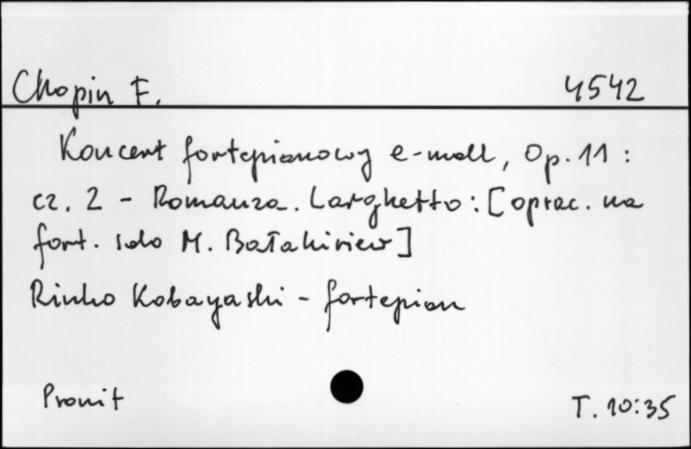 Chopin F. 4542
Koncert fortepianowy e-moll, Op. 11 :
cz. 2 - Romanza. Larghetto : [oprac. na
fort. solo M. Bałakiriew]
Rinko Kobayashi - fortepian
Pronit T. 10:35